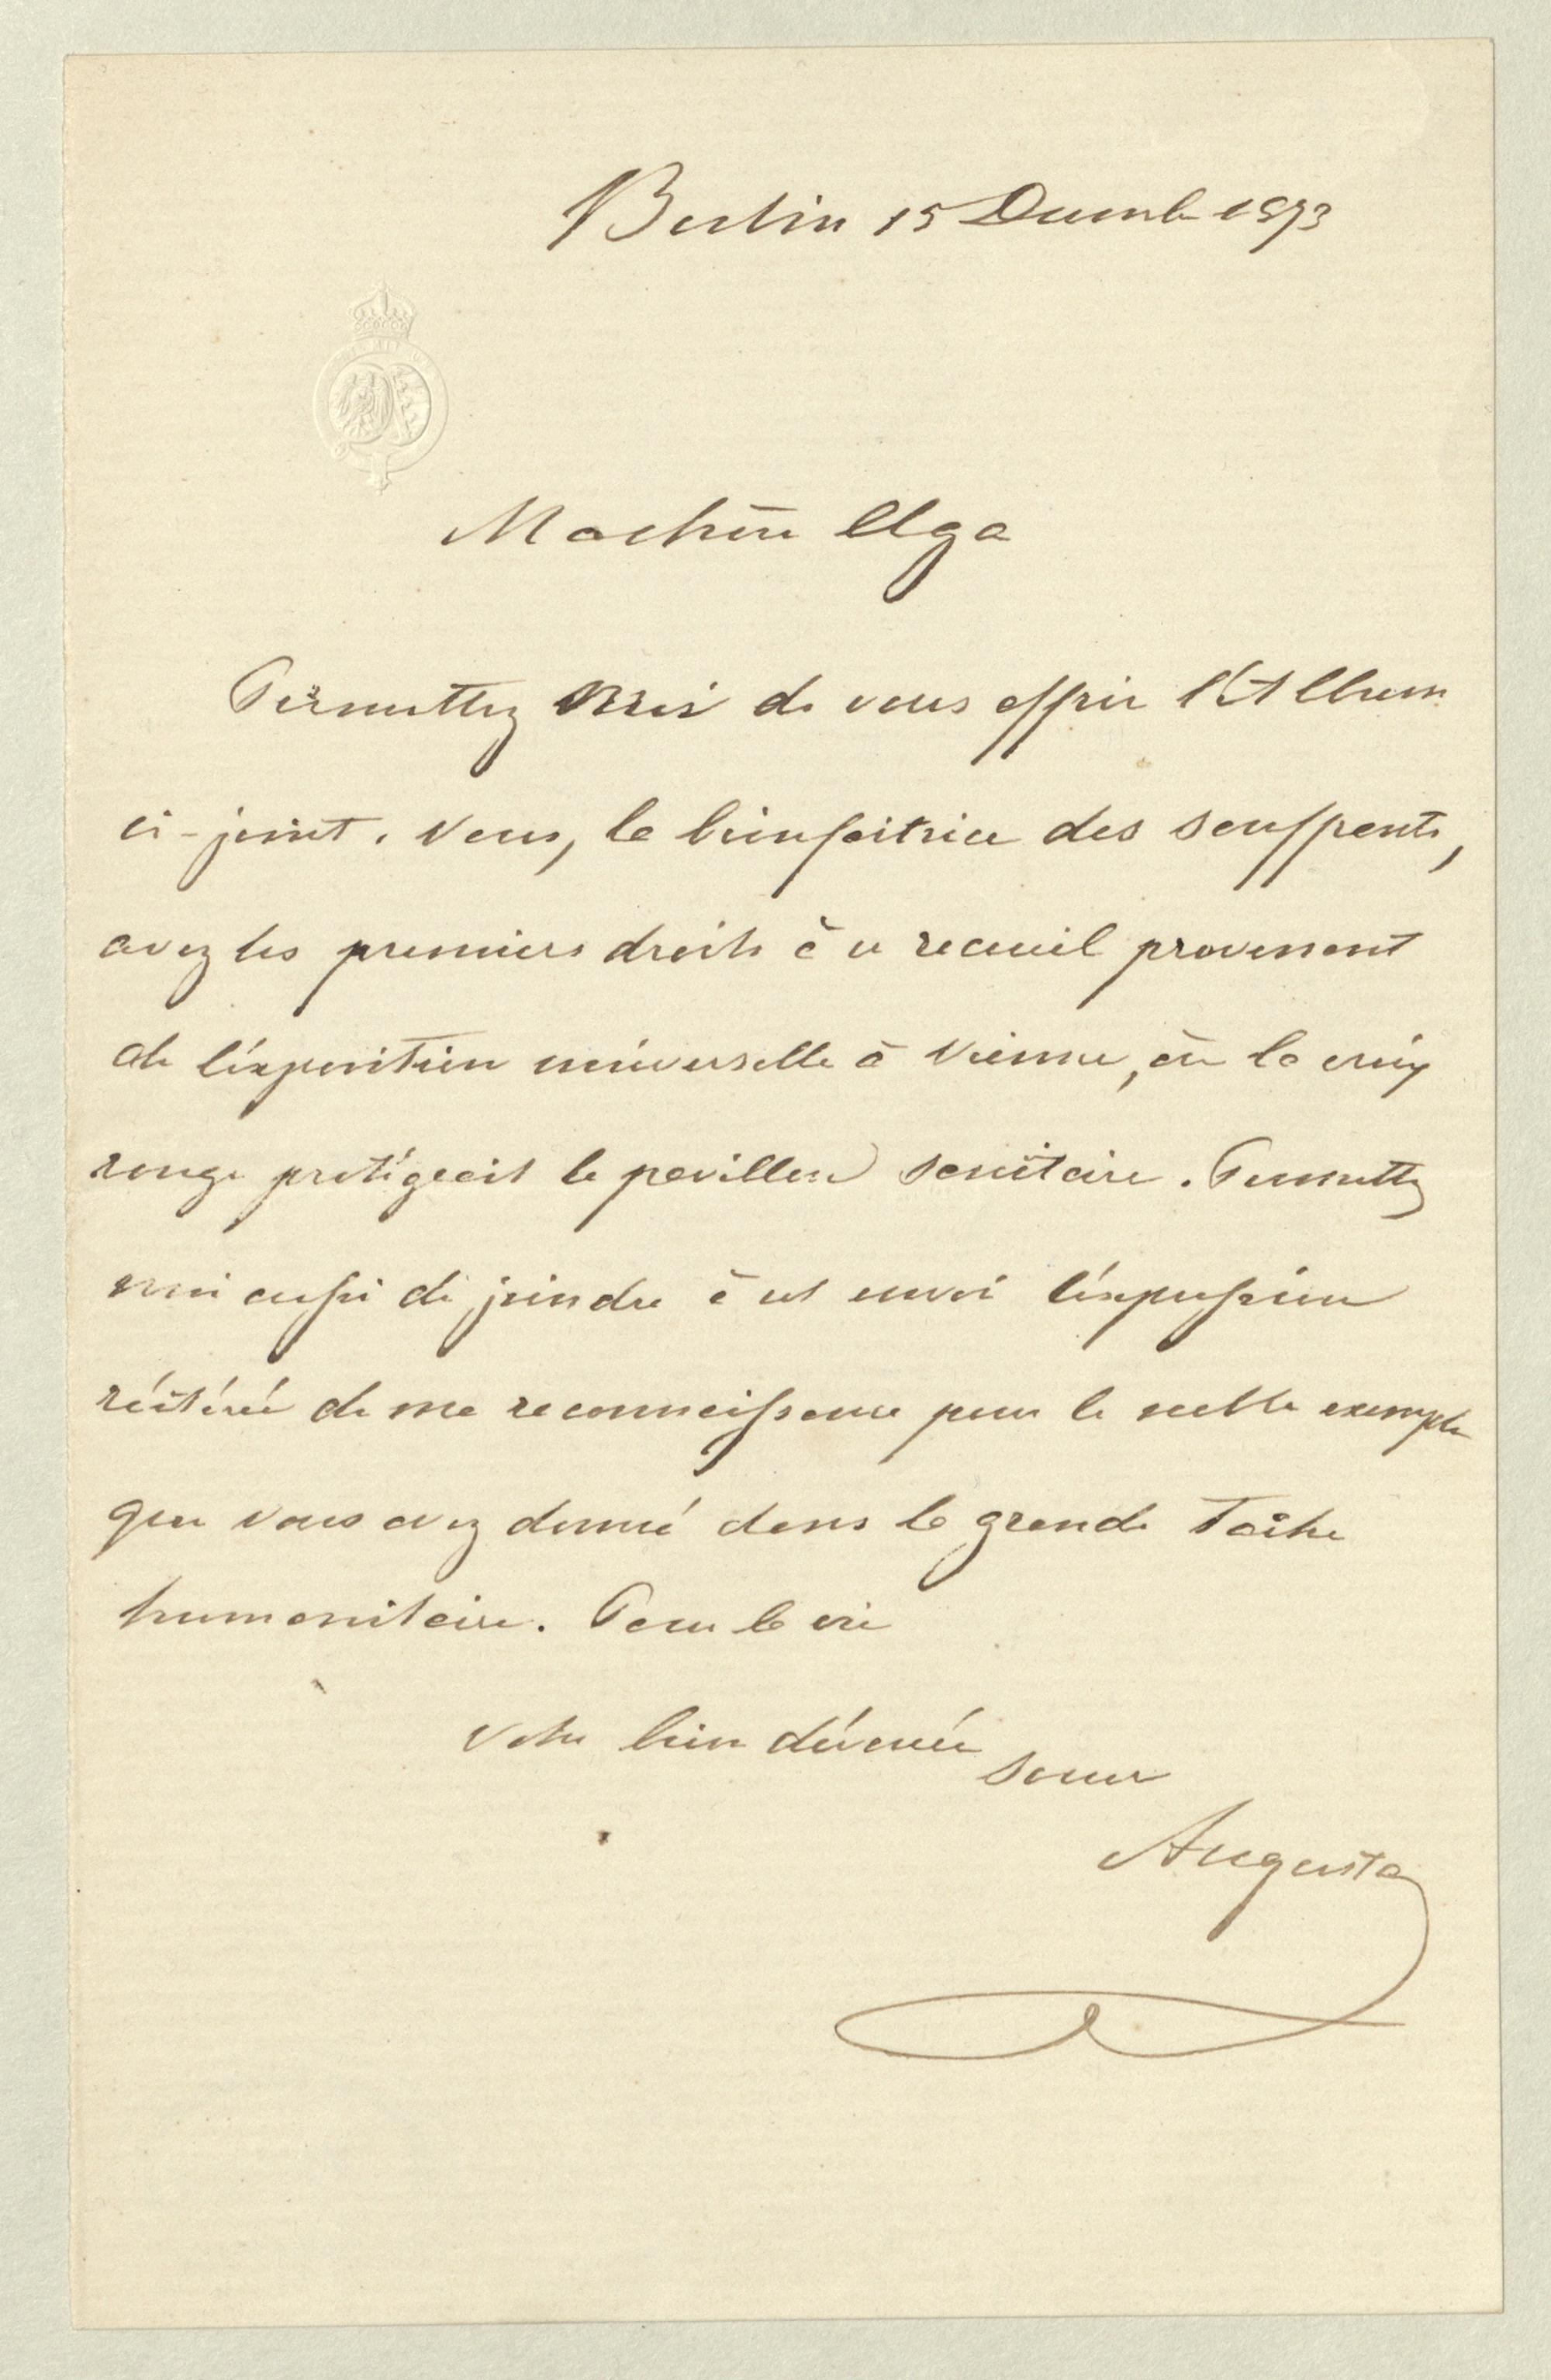 Berlin 15 Decemb 1873
Ma chère Olga
Permettez moi de vous offrir l'Album
ci-joint. Vous, la bienfaitrice des souffrants,
avez les premiers droits à ce recueil provenant
de l'éxposition universelle à Vienne, où la croix
rouge protégeait le pavillon sanitaire. Permettez
moi aussi de joindre à cet envoi l'éxpression
réitérée de ma reconnaissance pour le noble exemple
que vous avez donné dans la grande tâche
humanitaire. Pour la vie
votre bien dévouée
soeur
Augusta